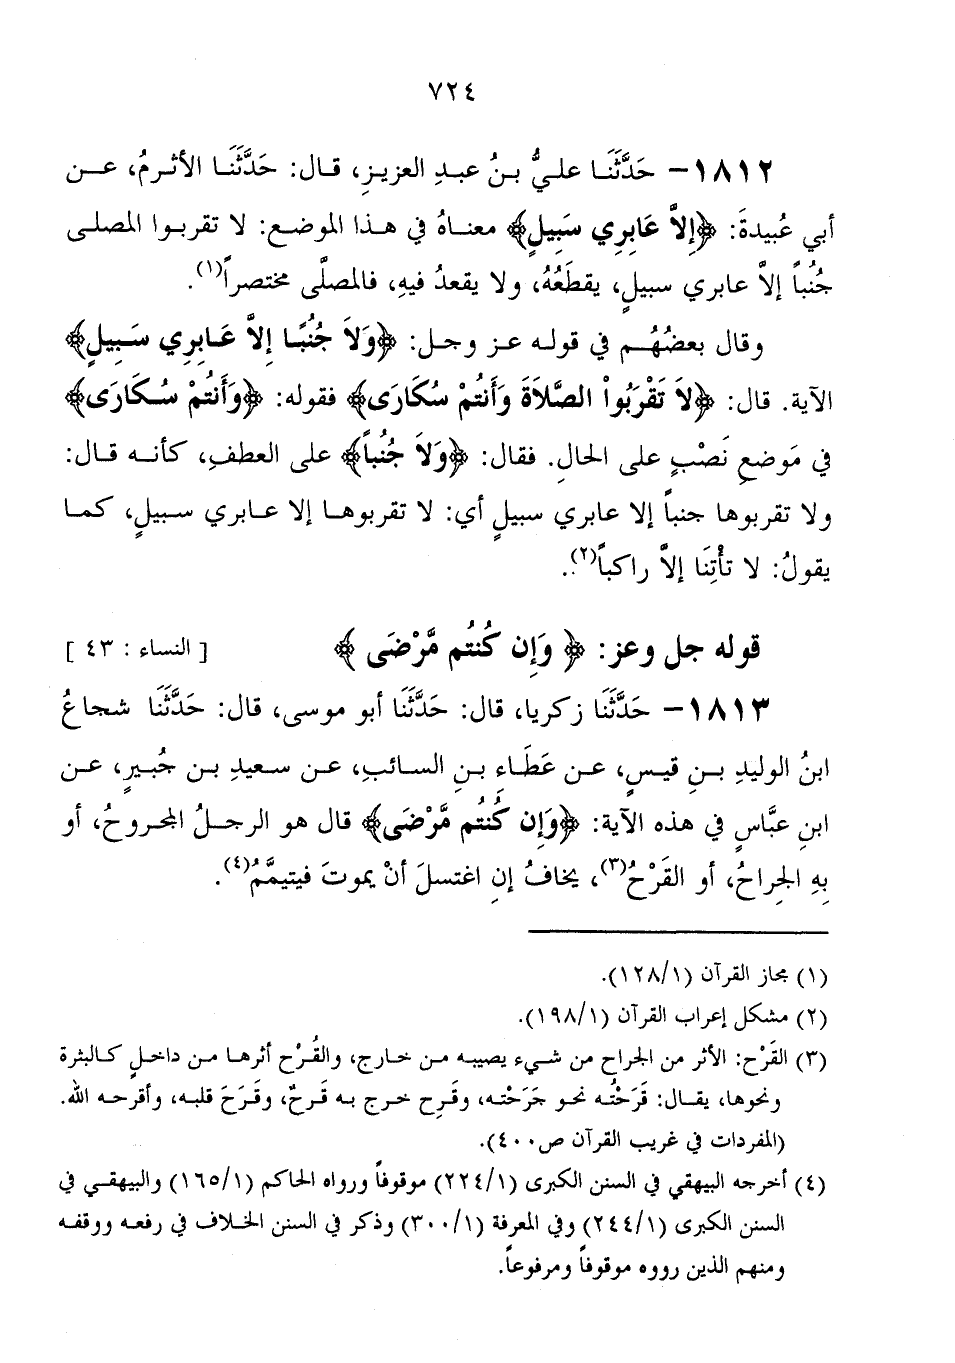 ٧٢٤
١٨١٢- حَدَّثَنَا عليُّ بنُ عبدِ العزيزِ، قال: حَدَّثَنَا الأثرمُ، عن
أبي عُبيدةَ: ﴿إِلاَّ عَابِرِي سَبِيلٍ﴾ معناهُ في هذا الموضعِ: لا تقربوا المصلى
جُنُباً إلاَّ عابري سبيلٍ، يقطَعُهُ، ولا يقعدُ فيهِ، فالمصلَّى مختصراً(١).
وقال بعضُهُم في قوله عز وجل: ﴿وَلاَ جُنُبًا إِلاَّ عَابِرِي سَبِيلٍ﴾
الآية. قال: ﴿لاَ تَقْرَبُواْ الصَّلاَةَ وَأَنتُمْ سُكَارَى﴾ فقوله: ﴿وَأَنتُمْ سُكَارَى﴾
في مَوضعِ نَصْبٍ على الحالِ. فقال: ﴿وَلاَ جُنُباً﴾ على العطفِ، كأنه قال:
ولا تقربوها جنباً إلا عابري سبيلٍ أي: لا تقربوها إلا عابري سبيلٍ، كما
يقولُ: لا تأْتِنَا إلاَّ راكباً(٢).
قوله جل وعز: ﴿ وَإِن كُنتُم مَّرْضَى ﴾ [ النساء : ٤٣ ]
١٨١٣- حَدَّثَنَا زكريا، قال: حَدَّثَنَا أبو موسى، قال: حَدَّثَنَا شجاعُ
ابنُ الوليدِ بنِ قيسٍ، عن عَطَاءِ بنِ السائبِ، عن سعيدِ بن جُبيرٍ، عن
ابنِ عبَّاسٍ في هذه الآية: ﴿وَإِن كُنتُم مَّرْضَى﴾ قال هو الرجلُ المجروحُ، أو
بهِ الجِراحُ، أو القَرْحُ(٣)، يخافُ إنِ اغتسلَ أنْ يموتَ فيتيمَّمُ(٤).
(١) مجاز القرآن (١٢٨/١).
(٢) مشكل إعراب القرآن (١٩٨/١).
(٣) القَرْح: الأثر من الجراح من شيء يصيبه من خارج، والقُرْح أثرها من داخلٍ كالبثرة
ونحوها، يقال: قَرَحْتُه نحو جَرَحْته، وقَرِح خرج به قَرحٌ، وقَرَحَ قلبه، وأقرحه الله.
(المفردات في غريب القرآن ص٤٠٠).
(٤) أخرجه البيهقي في السنن الكبرى (٢٢٤/١) موقوفاً ورواه الحاكم (١٦٥/١) والبيهقي في
السنن الكبرى (٢٤٤/١) وفي المعرفة (٣٠٠/١) وذكر في السنن الخلاف في رفعه ووقفه
ومنهم الذين رووه موقوفاً ومرفوعاً.